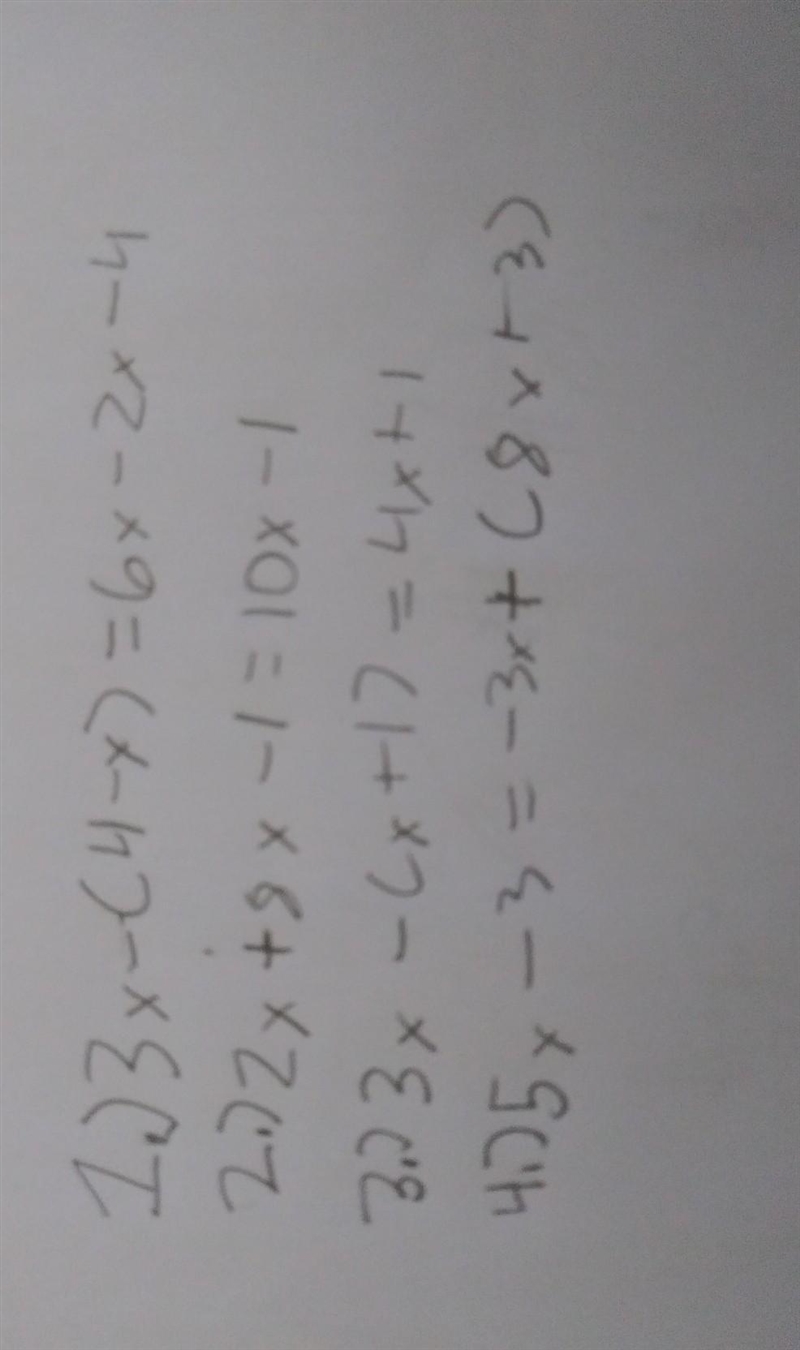 1.) 3x-(4-x)=6x-2x-4
2.) 2x+8x-1=10x-1
3.) 3x-(x+1)=4x+1
4.) 5x-3=-3x+(8x+3)